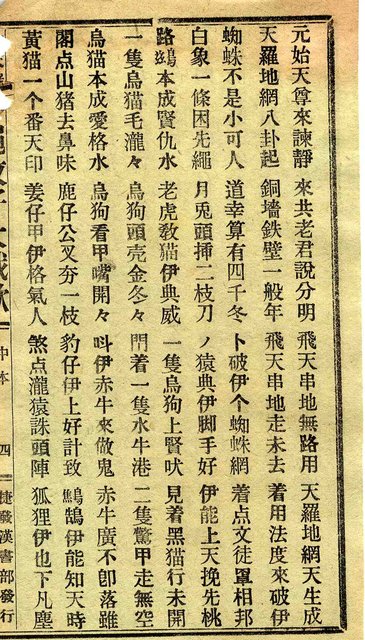 元始天尊來諫靜　來共老君說分明　飛天串地無路用　天羅地網天生成
天羅地網八卦起　銅墻鉄壁一般年　飛天串地走未去　着用法度來破伊
蜘蛛不是小可人　道幸算有四千冬　卜破伊个蜘蛛網　着点文徒罩相邦
白象一條困先繩　月兎頭揷二枝刀　ノ猿典伊脚手好　伊能上天挽先桃
路鷀本成賢仇水　老虎敎猫伊典威　一隻烏狗上賢吠　見着黑猫行未開
一隻烏猫毛瀧々　烏狗頭壳金冬々　閗着一隻水牛港　二隻驚甲走無空
烏猫本成愛格水　烏狗看甲嘴開々　呌伊赤牛來做鬼　赤牛廣不卽落雖
閣点山猪去鼻味　鹿仔公叉夯一枝　豹仔伊上好計致　鷓鵠伊能知天時
黃猫一个番天印　姜仔甲伊格氣人　煞点瀧猿誅頭陣　狐狸伊也下凡塵
中本　四　捷發漢書部發行